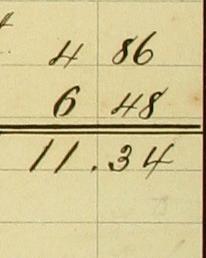 4 86
6 48
11.34